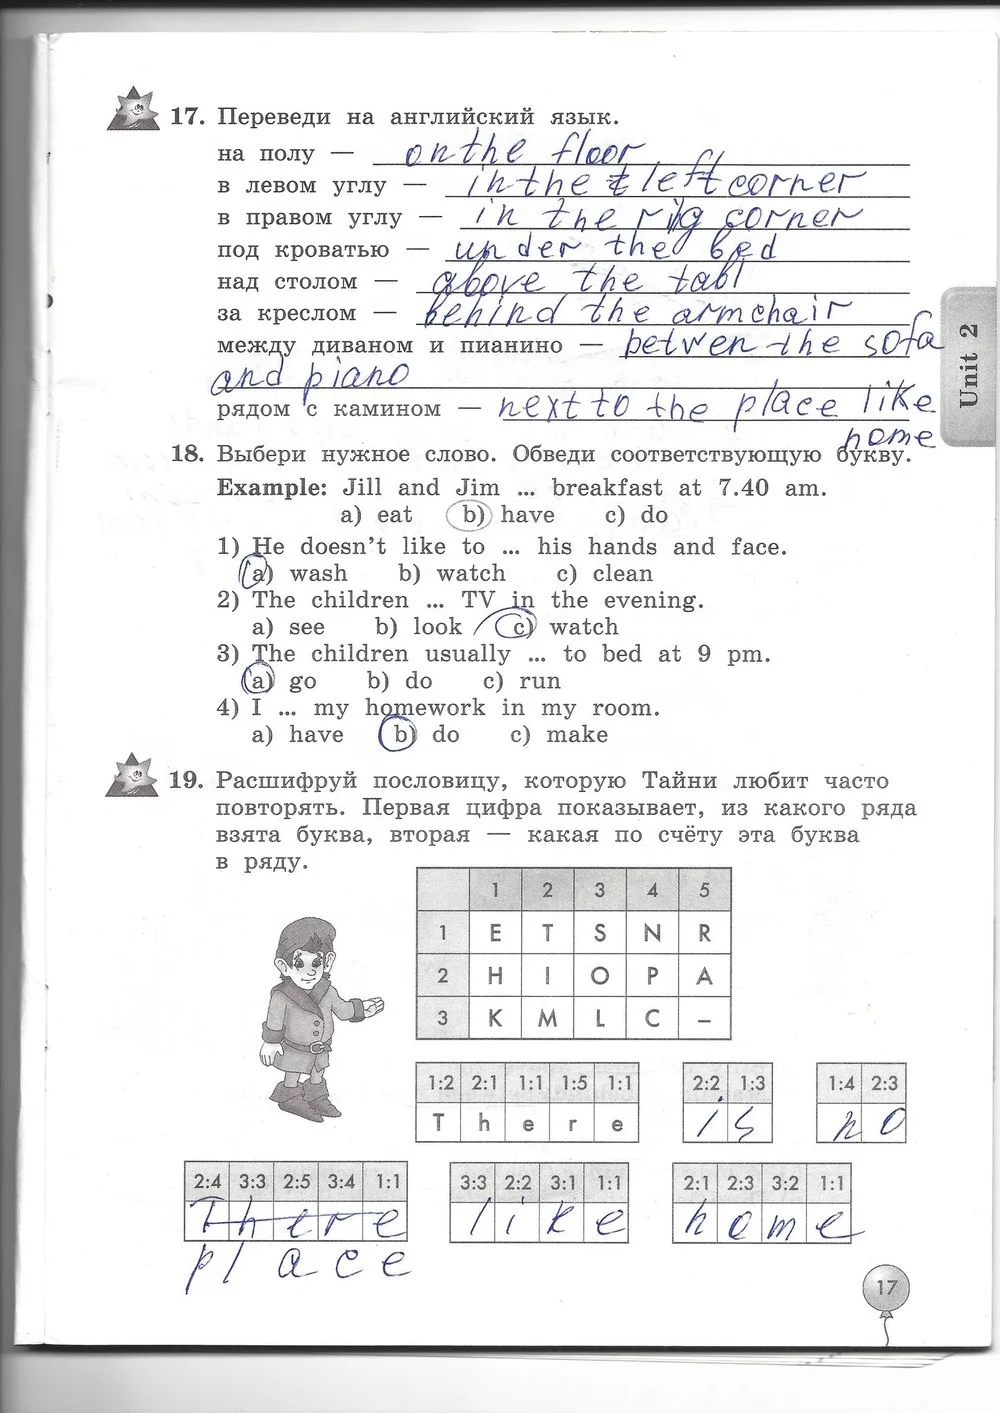 17. Переведи на английский язык.
на полу — on the floor
в левом углу — in the left corner
в правом углу — in the rig corner
под кроватью — under the bed
над столом — above the tabl
за креслом — behind the armchair
между диваном и пианино — betwen the sofa
and piano
рядом с камином — next to the place like
home
18. Выбери нужное слово. Обведи соответствующую букву.
Example: Jill and Jim ... breakfast at 7.40 am.
a) eat b) have c) do
1) He doesn't like to ... his hands and face.
a) wash b) watch c) clean
2) The children ... TV in the evening.
a) see b) look c) watch
3) The children usually ... to bed at 9 pm.
a) go b) do c) run
4) I ... my homework in my room.
a) have b) do c) make
Unit 2
19. Расшифруй пословицу, которую Тайни любит часто
повторять. Первая цифра показывает, из какого ряда
взята буква, вторая — какая по счёту эта буква
в ряду.
1 2 3 4 5
1 E T S N R
2 H I O P A
3 K M L C –
1:2 2:1 1:1 1:5 1:1 2:2 1:3 1:4 2:3
T h e r e i s n o
2:4 3:3 2:5 3:4 1:1 3:3 2:2 3:1 1:1 2:1 2:3 3:2 1:1
There l i k e h o m e
place
17